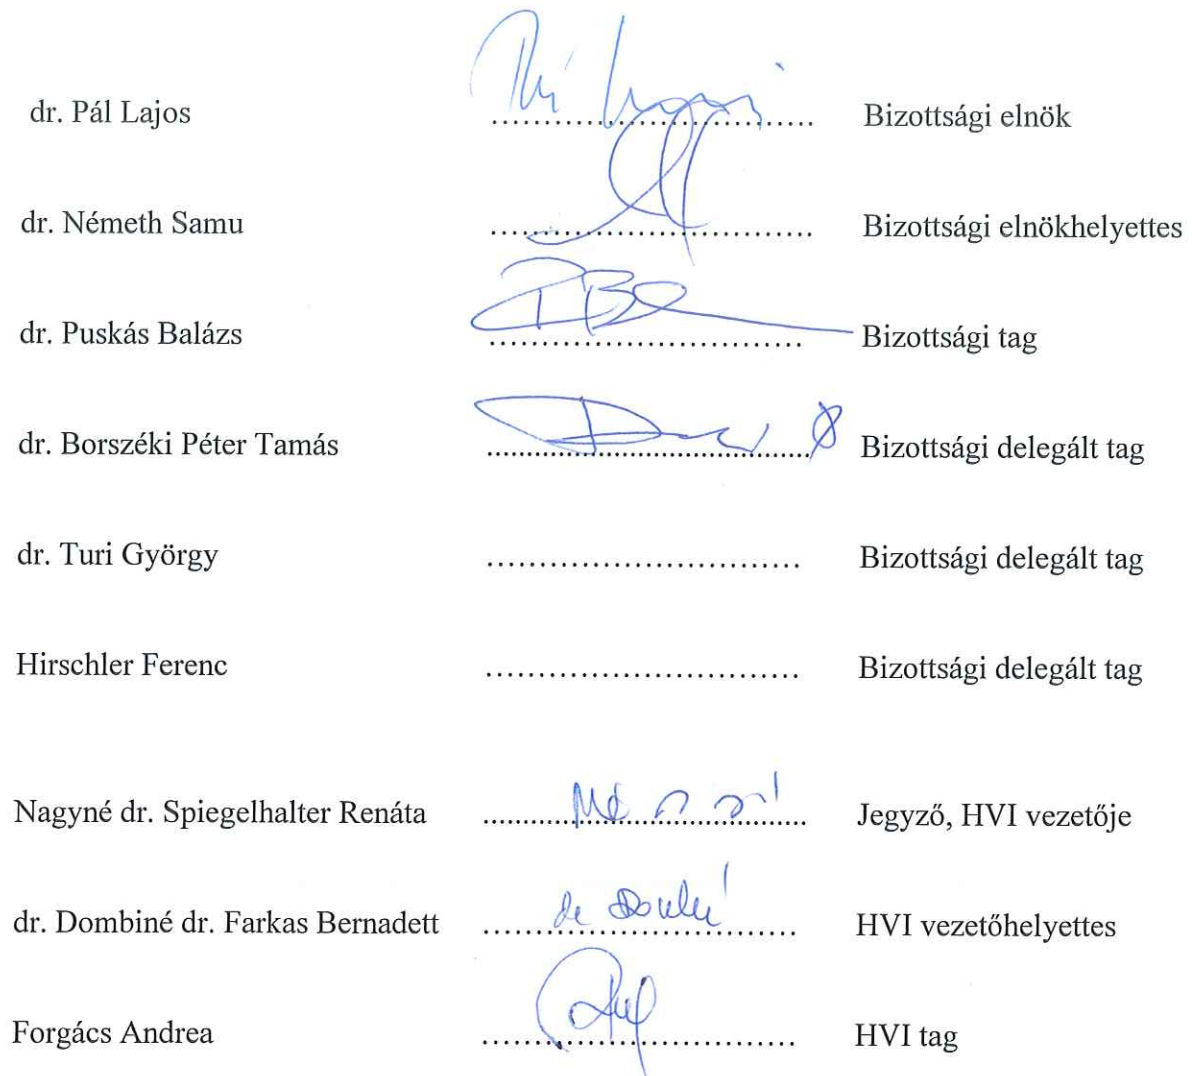 dr. Pál Lajos .............................. Bizottsági elnök
dr. Németh Samu .............................. Bizottsági elnökhelyettes
dr. Puskás Balázs .............................. Bizottsági tag
dr. Borszéki Péter Tamás .............................. Bizottsági delegált tag
dr. Turi György .............................. Bizottsági delegált tag
Hirschler Ferenc .............................. Bizottsági delegált tag
Nagyné dr. Spiegelhalter Renáta .............................. Jegyző, HVI vezetője
dr. Dombiné dr. Farkas Bernadett .............................. HVI vezetőhelyettes
Forgács Andrea .............................. HVI tag